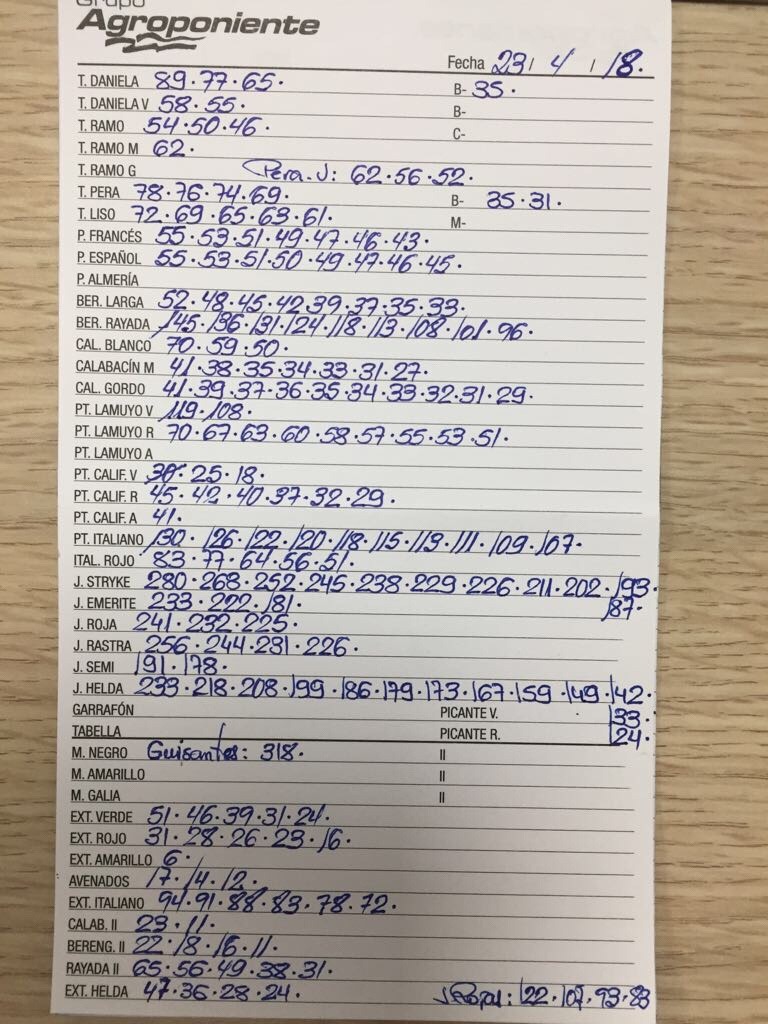 Grupo
Agroponiente
Fecha 23/ 4 / 18.
T. DANIELA 89.77.65. B- 35.
T. DANIELA V 58.55. B-
T. RAMO 54.50.46. C-
T. RAMO M 62.
T. RAMO G Pera. J: 62.56.52.
T. PERA 78.76.74.69. B- 35.31.
T. LISO 72.69.65.63.61. M-
P. FRANCÉS 55.53.51.49.47.46.43.
P. ESPAÑOL 55.53.51.50.49.47.46.45.
P. ALMERÍA
BER. LARGA 52.48.45.42.39.37.35.33.
BER. RAYADA 145.136.131.124.118.113.108.101.96.
CAL. BLANCO 70.59.50.
CALABACÍN M 41.38.35.34.33.31.27.
CAL. GORDO 41.39.37.36.35.34.33.32.31.29.
PT. LAMUYO V 119.108.
PT. LAMUYO R 70.67.63.60.58.57.55.53.51.
PT. LAMUYO A
PT. CALIF. V 30.25.18.
PT. CALIF. R 45.42.40.37.32.29.
PT. CALIF. A 41.
PT. ITALIANO 130.126.122.120.118.115.113.111.109.107.
ITAL. ROJO 83.77.64.56.51.
J. STRYKE 280.268.252.245.238.229.226.211.202.193.
187.
J. EMERITE 233.222.181.
J. ROJA 241.232.225.
J. RASTRA 256.244.231.226.
J. SEMI 191.178.
J. HELDA 233.218.208.199.186.179.173.167.159.149.142.
GARRAFÓN PICANTE V. 133.
TABELLA PICANTE R. 124.
M. NEGRO Guisantes: 318. II
M. AMARILLO II
M. GALIA II
EXT. VERDE 51.46.39.31.24.
EXT. ROJO 31.28.26.23.16.
EXT. AMARILLO 6.
AVENADOS 17.14.12.
EXT. ITALIANO 94.91.88.83.78.72.
CALAB. II 23.11.
BERENG. II 22.18.16.11.
RAYADA II 65.56.49.38.31.
EXT. HELDA 47.36.28.24. 122.107.93.83